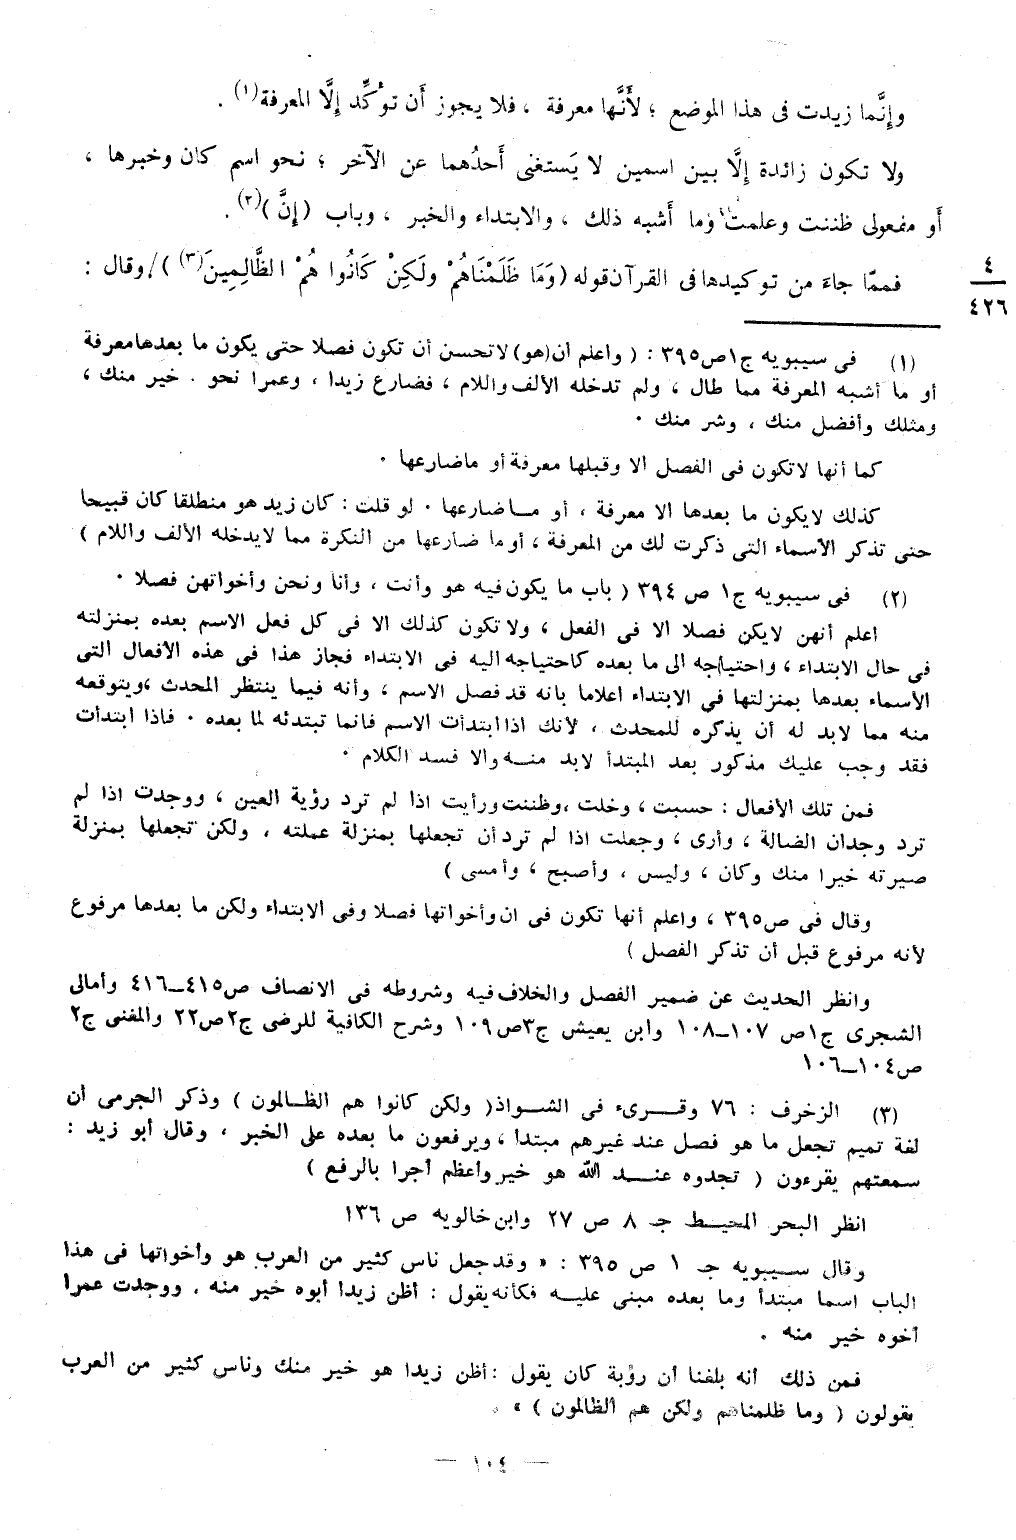 وإِنَّما زيدت فى هذا الموضع ؛ لأَنَّها معرفة ، فلا يجوز أَن تؤكِّد إِلَّا المعرفة(١) .
ولا تكون زائدة إِلَّا بين اسمين لا يَستغنى أَحدُهما عن الآخر ؛ نحو اسم كان وخبرها ،
أَو مفعولى ظننت وعلمت وما أَشبه ذلك ، والابتداء والخبر ، وباب (إِنَّ)(٢) .
فممّا جاءَ من توكيدها فى القرآن قوله (وَمَا ظَلَمْنَاهُمْ ولَكِنْ كَانُوا هُمْ الظَّالِمِينَ(٣))/ وقال :
٤
٤٢٦
(١) فى سيبويه ج١ص٣٩٥ : ( واعلم أن(هو) لاتحسن أن تكون فصلا حتى يكون ما بعدهامعرفة
أو ما أشبه المعرفة مما طال ، ولم تدخله الألف واللام ، فضارع زيدا ، وعمرا نحو . خير منك ،
ومثلك وأفضل منك ، وشر منك .
كما أنها لاتكون فى الفصل الا وقبلها معرفة أو ماضارعها .
كذلك لايكون ما بعدها الا معرفة ، أو ما ضارعها . لو قلت : كان زيد هو منطلقا كان قبيحا
حتى تذكر الأسماء التى ذكرت لك من المعرفة ، أوما ضارعها من النكرة مما لايدخله الألف واللام )
(٢) فى سيبويه ج١ ص ٣٩٤ ( باب ما يكون فيه هو وأنت ، وأنا ونحن وأخواتهن فصلا .
اعلم أنهن لايكن فصلا الا فى الفعل ، ولا تكون كذلك الا فى كل فعل الاسم بعده بمنزلته
فى حال الابتداء ، واحتياجه الى ما بعده كاحتياجه اليه فى الابتداء فجاز هذا فى هذه الأفعال التى
الأسماء بعدها بمنزلتها في الابتداء اعلاما بانه قد فصل الاسم ، وأنه فيما ينتظر المحدث ،ويتوقعه
منه مما لابد له أن يذكره للمحدث ، لأنك اذا ابتدأت الاسم فانما تبتدئه لما بعده . فاذا ابتدأت
فقد وجب عليك مذكور بعد المبتدأ لابد منه والا فسد الكلام .
فمن تلك الأفعال : حسبت ، وخلت ،وظننت ورأيت اذا لم ترد رؤية العين ، ووجدت اذا لم
ترد وجدان الضالة ، وأرى ، وجعلت اذا لم ترد أن تجعلها بمنزلة عملته ، ولكن تجعلها بمنزلة
صيرته خيرا منك وكان ، وليس ، وأصبح ، وأمسى )
وقال فى ص٣٩٥ ، واعلم أنها تكون فى ان وأخواتها فصلا وفى الابتداء ولكن ما بعدها مرفوع
لأنه مرفوع قبل أن تذكر الفصل )
وانظر الحديث عن ضمير الفصل والخلاف فيه وشروطه فى الانصاف ص٤١٥ــ٤١٦ وأمالى
الشجرى ج١ص ١٠٧ــ١٠٨ وابن يعيش ج٣ص ١٠٩ وشرح الكافية للرضى ج٢ص٢٢ والمغنى ج٢
ص١٠٤ــ١٠٦
(٣) الزخرف : ٧٦ وقـرىء فى الشـواذ( ولكن كانوا هم الظـالمون ) وذكر الجرمى أن
لغة تميم تجعل ما هو فصل عند غيرهم مبتدأ ، ويرفعون ما بعده على الخبر ، وقال أبو زيد :
سمعتهم يقرءون ( تجدوه عنـد الله هو خير وأعظم أجرا بالرفع )
انظر البحر المحيط جـ ٨ ص ٢٧ وابن خالويه ص ١٣٦
وقال سـيبويه جـ ١ ص ٣٩٥ : « وقد جعل ناس كثير من العرب هو وأخواتها فى هذا
الباب اسما مبتدأ وما بعده مبنى عليـه فكأنه يقول : أظن زيدا أبوه خير منه . ووجدت عمرا
أخوه خير منه .
فمن ذلك أنه بلغنا أن رؤبة كان يقول : أظن زيدا هو خير منك وناس كثير من العرب
يقولون ( وما ظلمناهم ولكن هم الظالمون ) » .
— ١٠٤ —